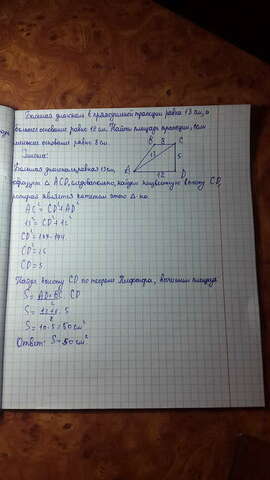 Большая диагональ в прямоугольной трапеции равна 13 см, а
большее основание равно 12 см. Найти площадь трапеции, если
меньшее основание равно 8 см.
Решение:
B 8 C
13
5
A
12
D
Большая диагональ равна 13 см,
образует △ ACD, следовательно, найдем неизвестную высоту CD,
которая является катетом этого △-ка
AC² = CD² + AD²
13² = CD² + 12²
CD² = 169 - 144
CD² = 25
CD = 5
Найдя высоту CD по теореме Пифагора, вычислим площадь
S = AD+BC/2 · CD
S = 12+8/2 · 5
S = 10 · 5 = 50 см²
Ответ: S = 50 см²